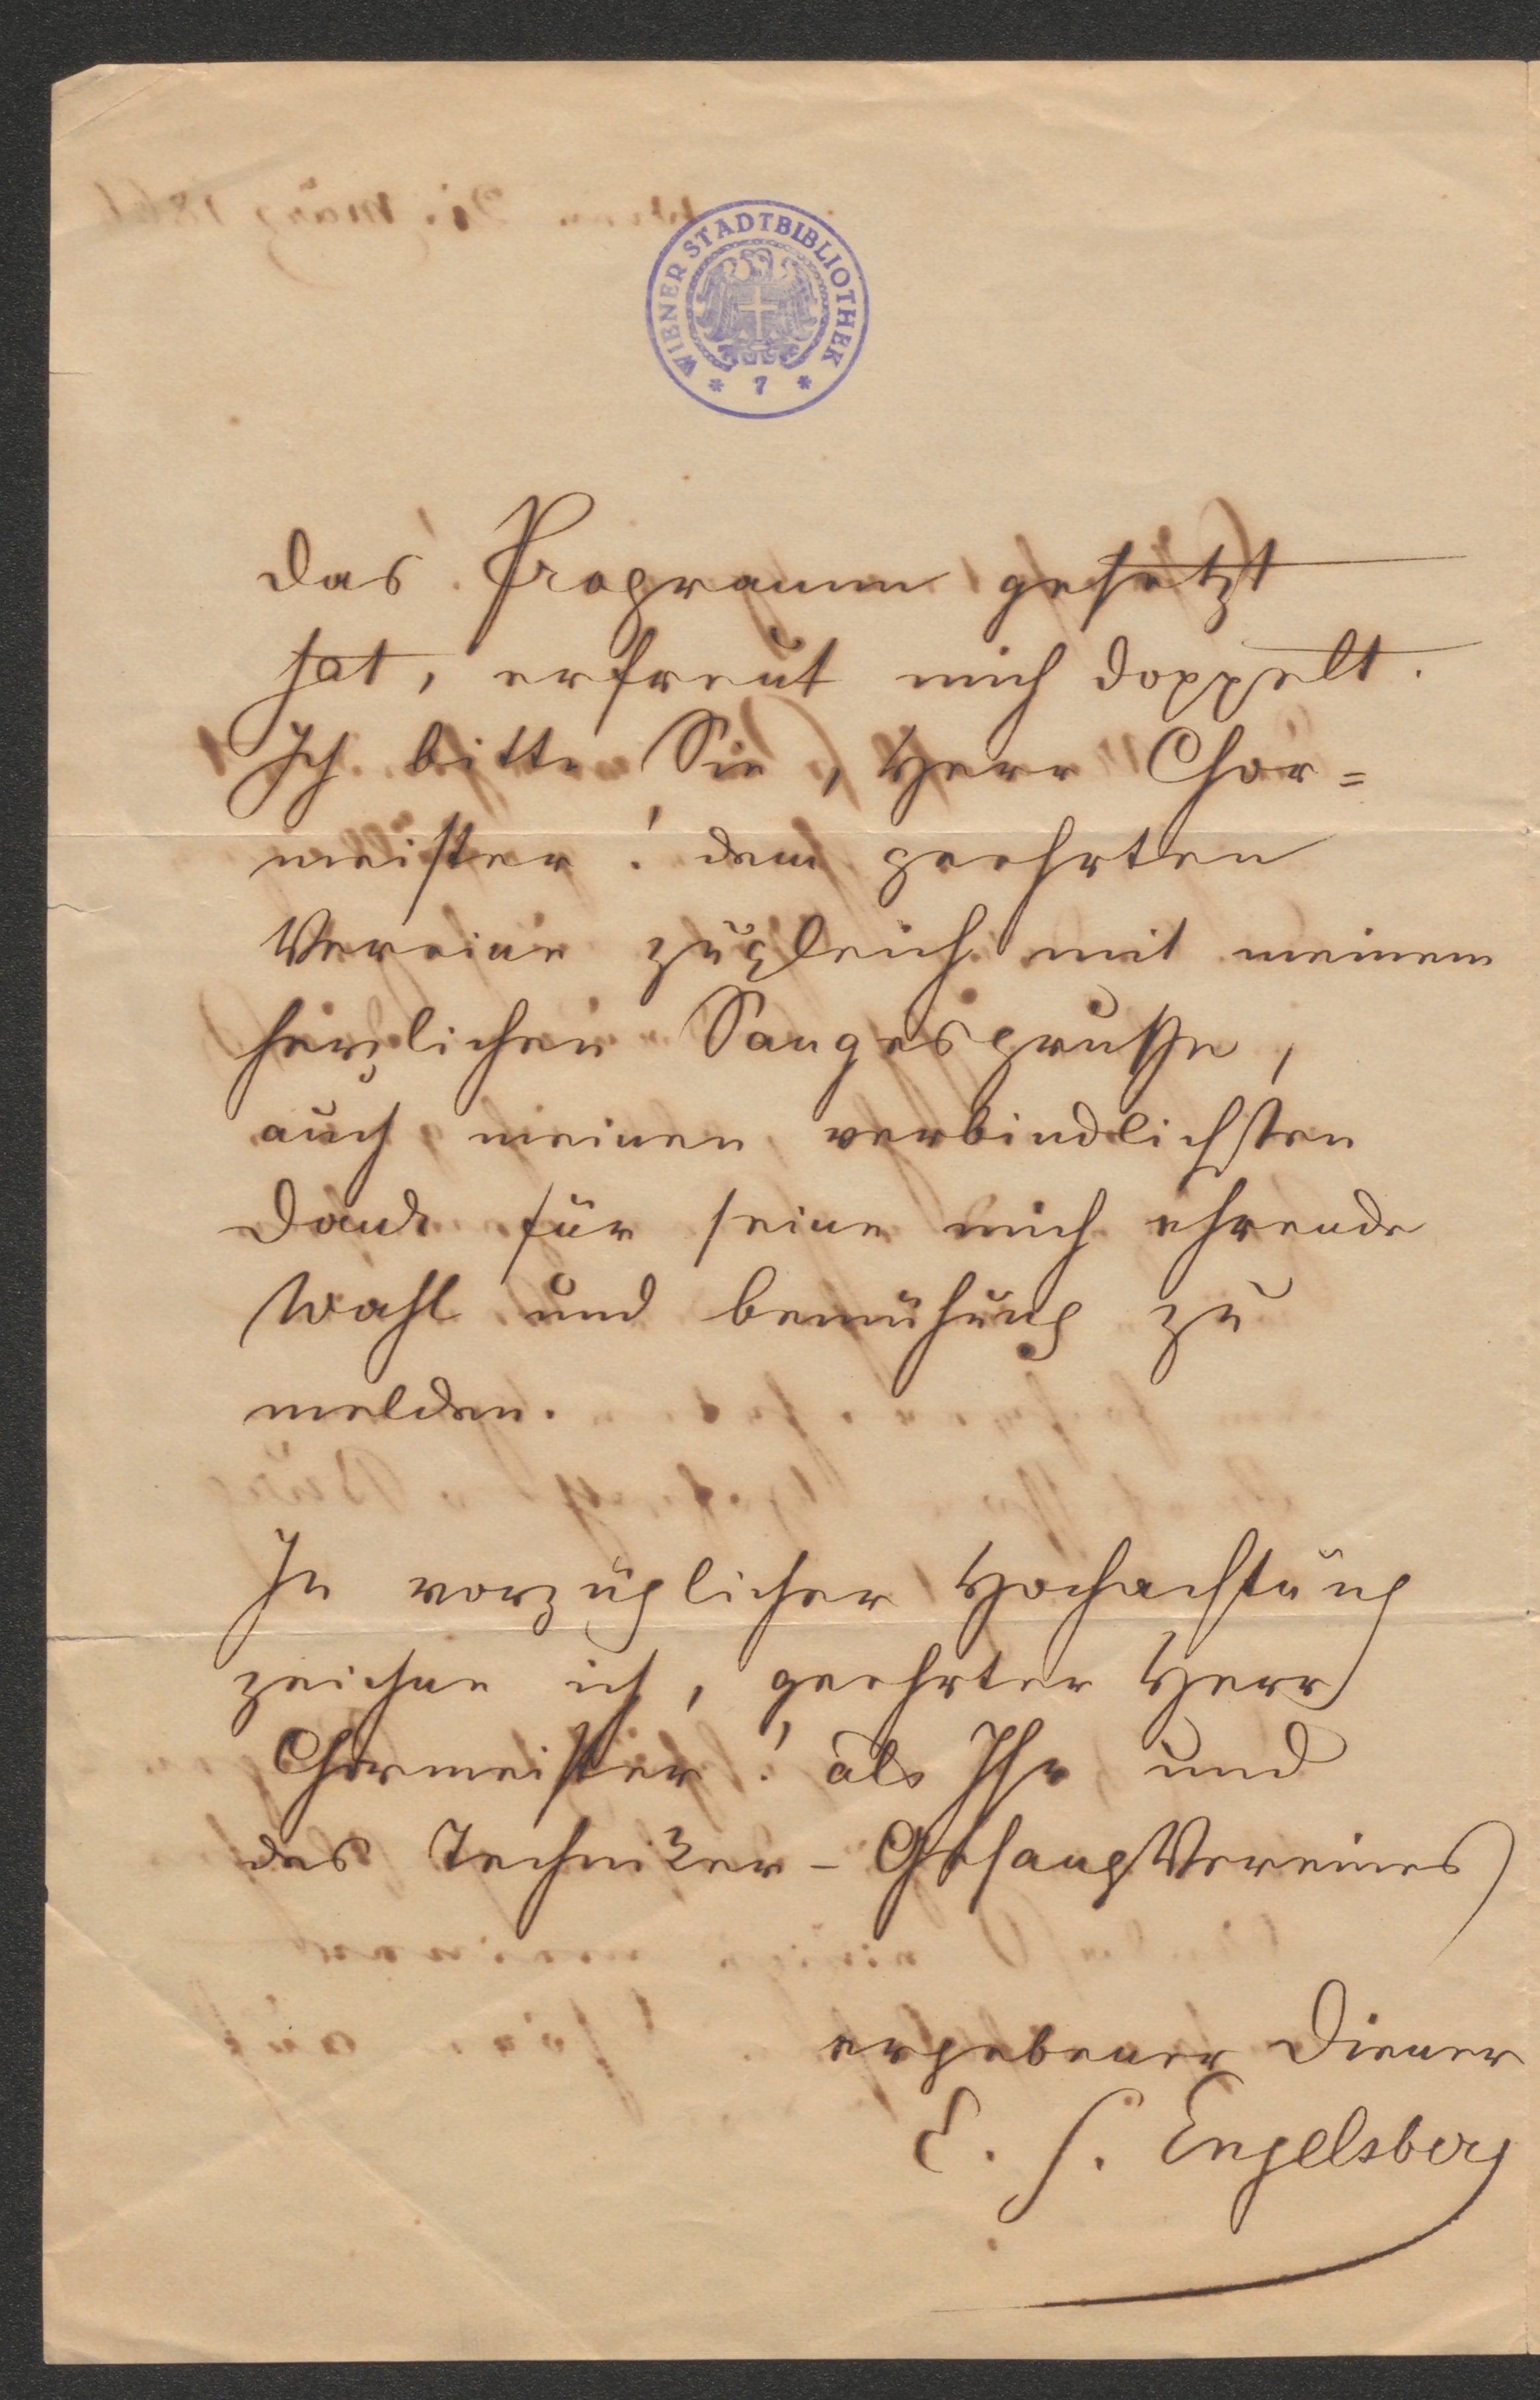 WIENER STADTBIBLIOTHEK
* 7 *
das Programm gesetzt
hat, erfreut mich doppelt.
Ich bitte Sie, Herr Chor=
meister! dem geehrten
Vereine zugleich mit meinem
herzlichen Sangesgruße,
auch meinen verbindlichsten
Dank für seine mich ehrende
Wahl und bemühung zu
melden.
In vorzüglicher Hochachtung
zeichne ich, geehrter Herr
Chormeister! als Ihr und
des Techniker-GesangVereines
ergebener Diener
E. S. Engelsberg